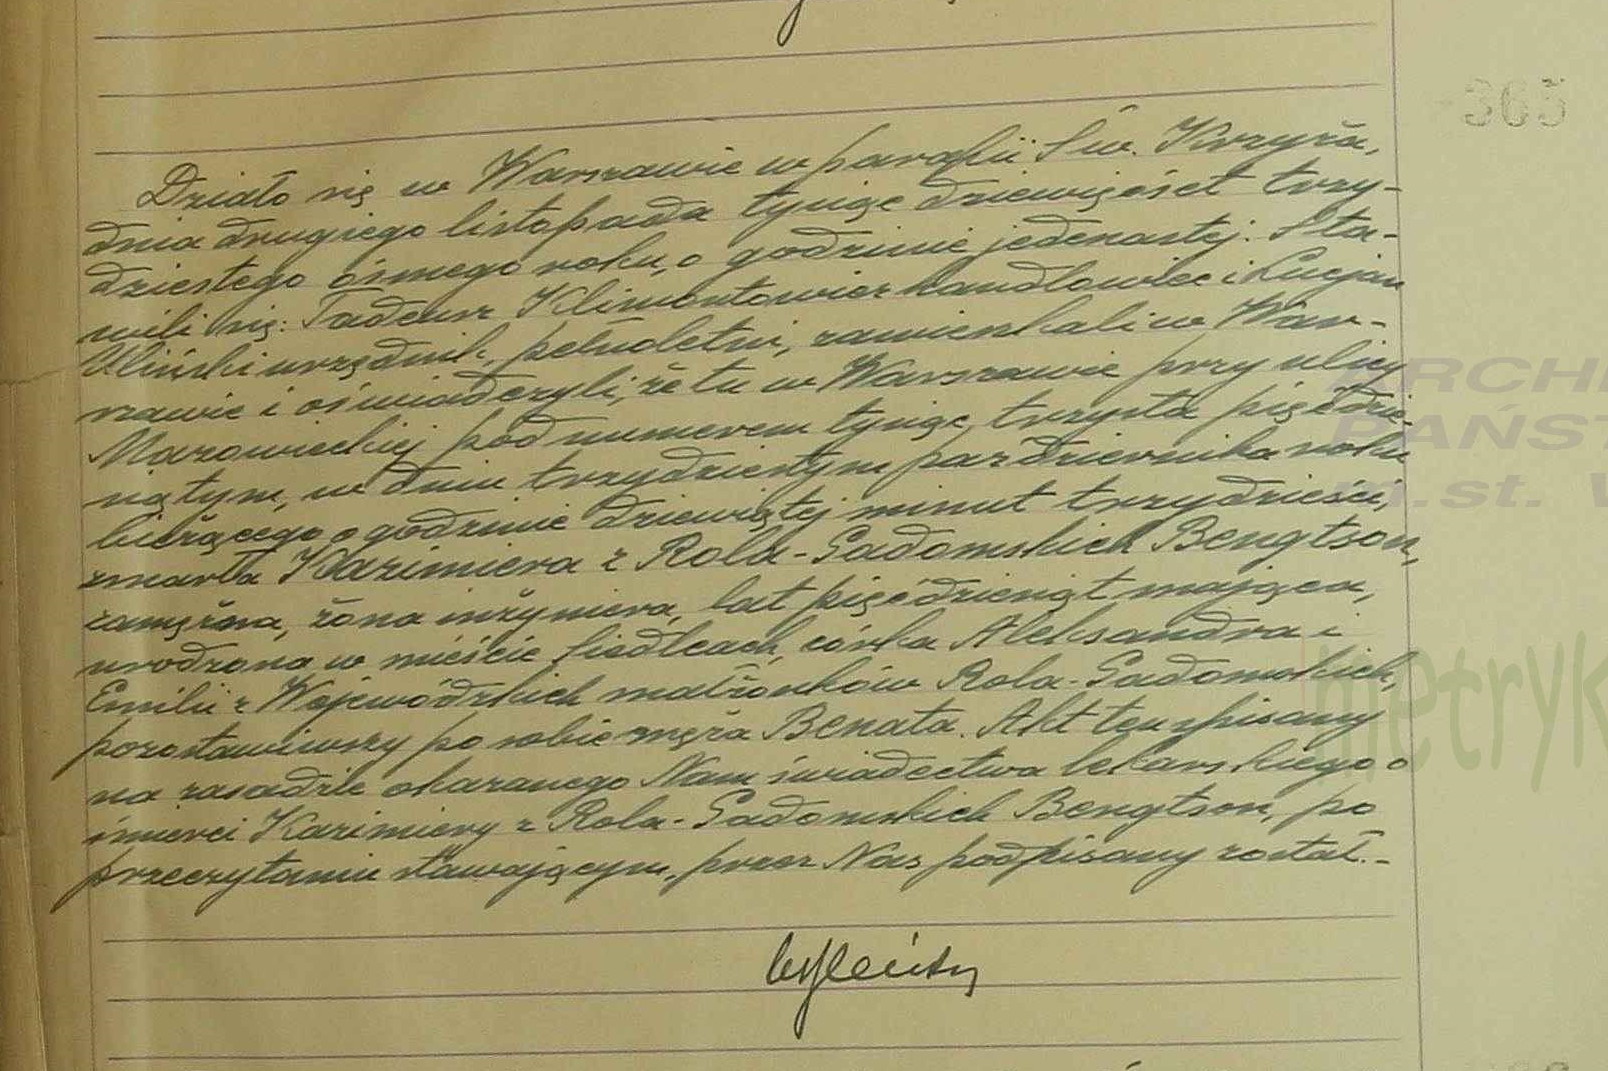 365
Działo się w Warszawie w parafii Św. Krzyża,
dnia drugiego listopada tysiąc dziewięćset trzy-
dziestego ósmego roku, o godzinie jedenastej. Sta-
wili się: Tadeusz Klimontowicz handlowiec i Lucjan
Uliński urzędnik, pełnoletni, zamieszkali w War-
szawie i oświadczyli, że tu w Warszawie przy ulicy
Mazowieckiej pod numerem tysiąc trzysta pięćdzie-
siątym, w dniu trzydziestym października roku
bieżącego o godzinie dziewiątej minut trzydzieści,
zmarła Kazimiera z Rola-Gadomskich Bengtson,
zamężna, żona inżyniera, lat pięćdziesiąt mająca,
urodzona w mieście Siedlcach, córka Aleksandra i
Emilii z Wojewódzkich małżonków Rola-Gadomskich,
pozostawiwszy po sobie męża Benata. Akt ten spisany
na zasadzie okazanego Nam świadectwa lekarskiego o
śmierci Kazimiery z Rola-Gadomskich Bengtson, po
przeczytaniu stawającym, przez Nas podpisany został.-
ARCHI
PAŃST
m.st. W
metryk